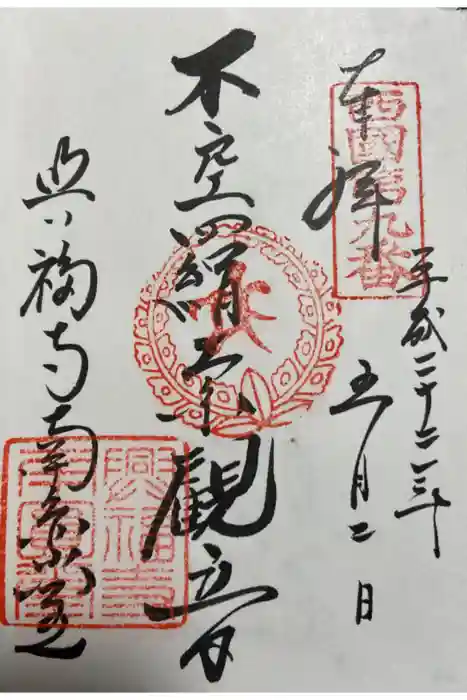 西國第九番
奉拝
平成二十三年
五月二日
不空羂索観音
興福寺南円堂
興福寺
南圓堂